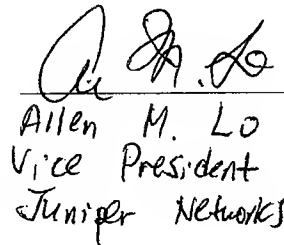 Allen M. Lo
Vice President
Juniper Networks